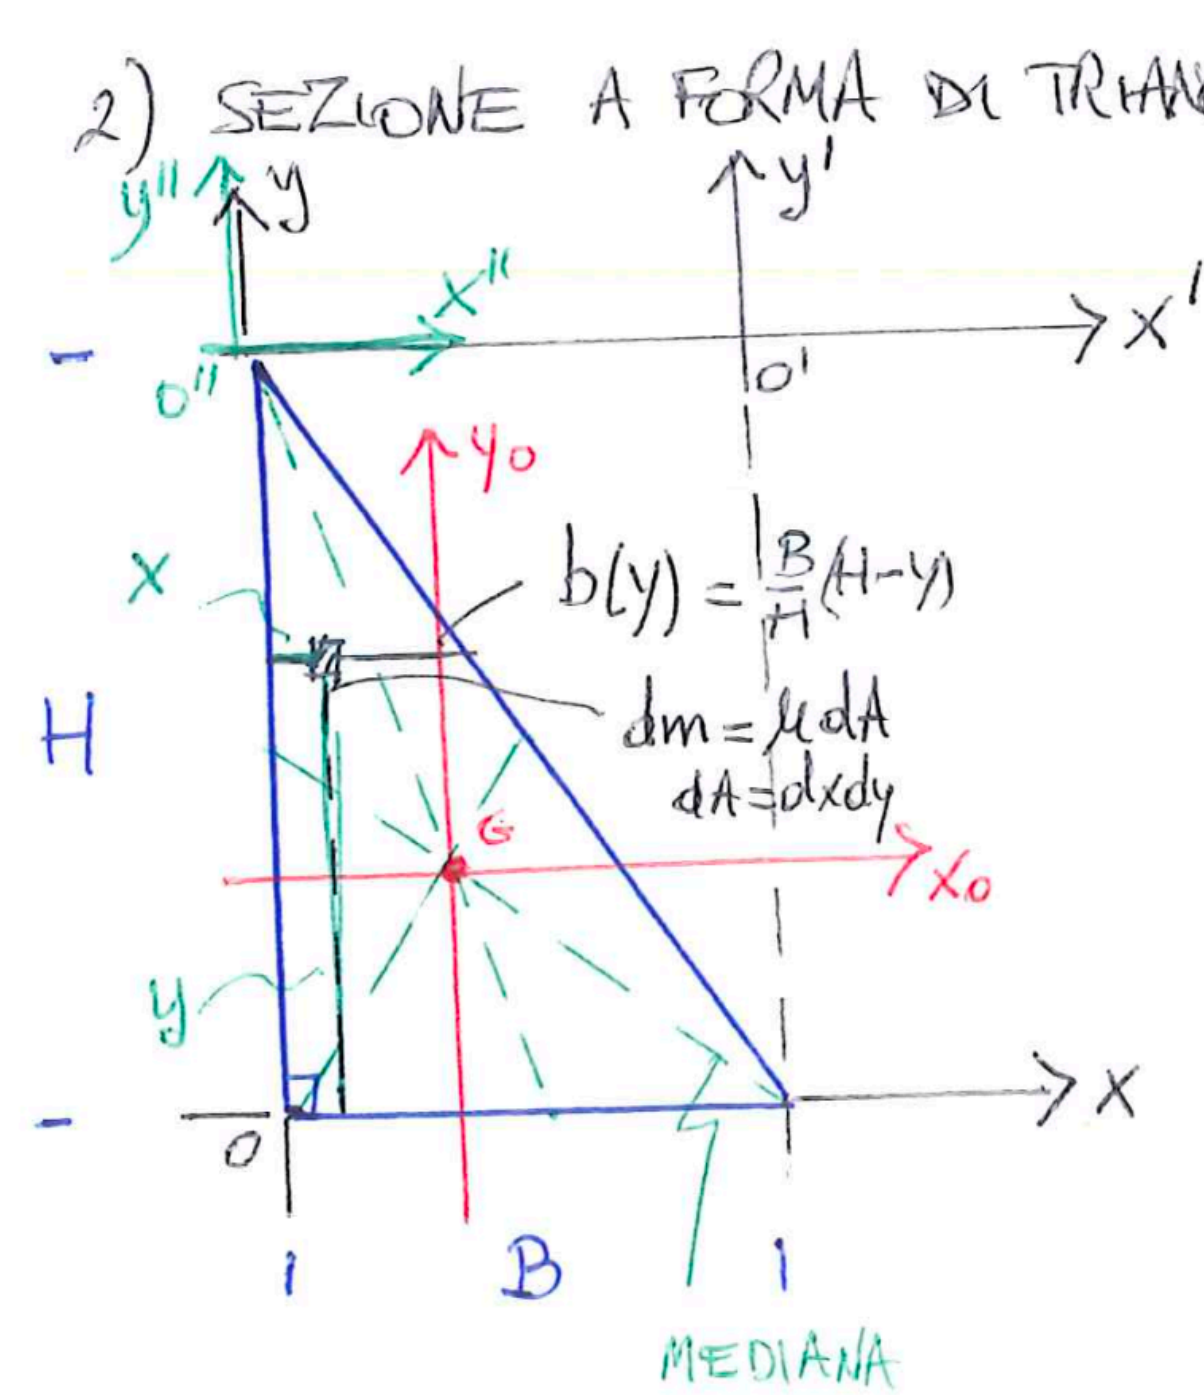 2) SEZIONE A FORMA DI TRIAN
y'' y y'
x'' x'
O'' O'
y₀
x b(y) = B/H (H-y)
H dm = μdA
dA = dxdy
G
x₀
y
O x
B
MEDIANA